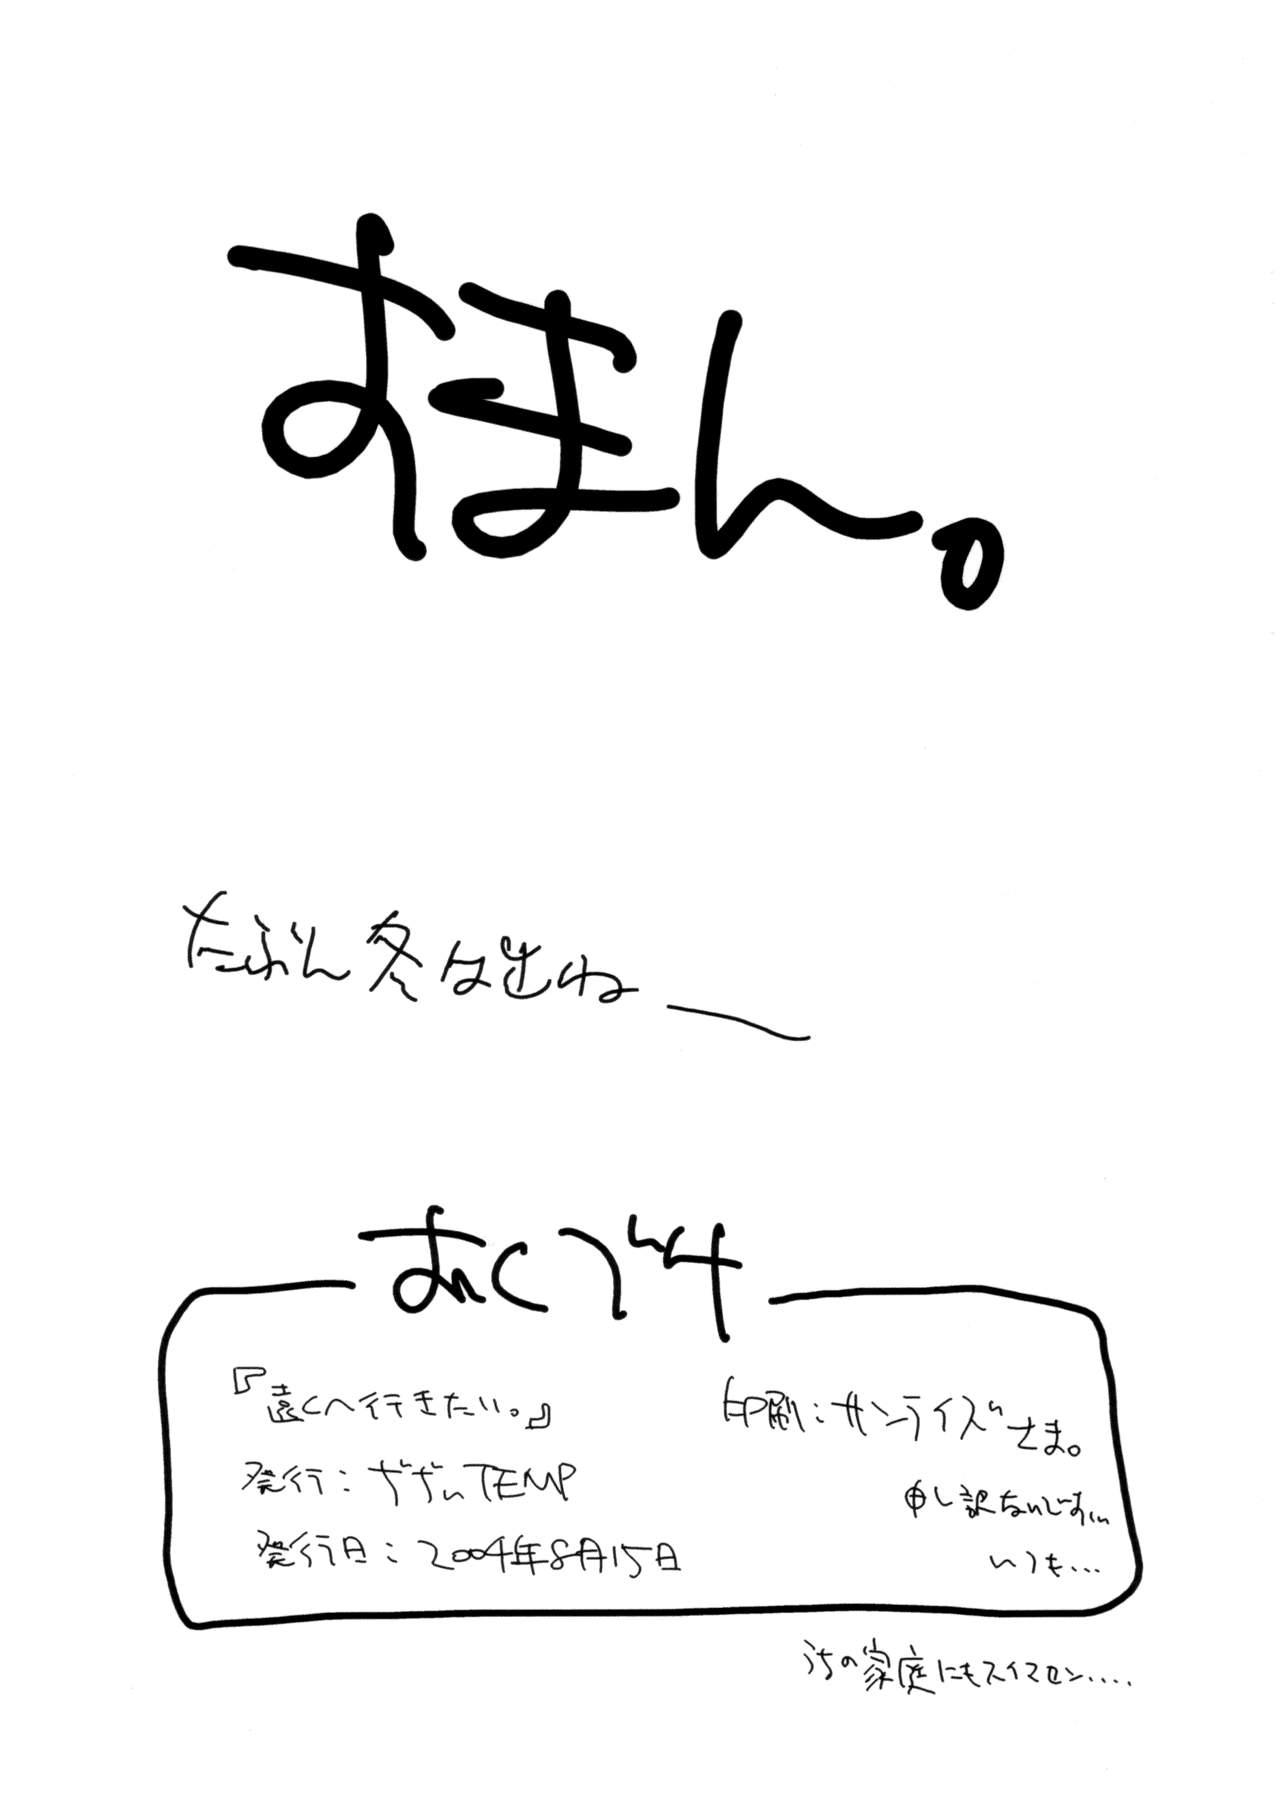 すまん。
たぶん冬は出ねー
おくづけ
『遠くへ行きたい。』
発行：ががぃTEMP
発行日：2004年8月15日
印刷：サンライズさま。
申し訳ないです…
いつも…
うちの家庭にもスイマセン....